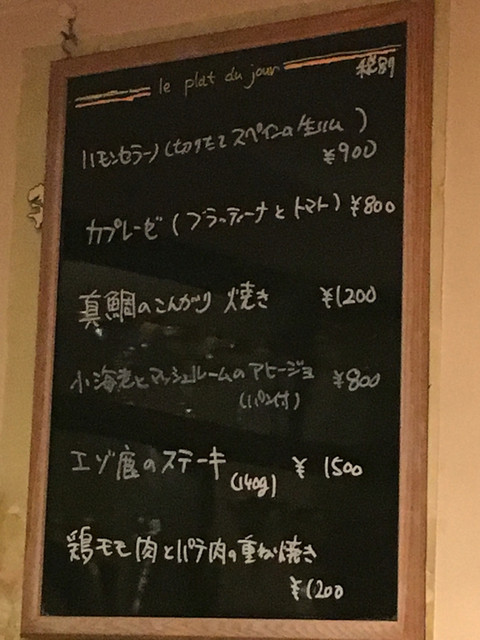 le plat du jour
税別
ハモンセラーノ(切りたてスペインの生ハム)
¥900
カプレーゼ(ブラッティーナとトマト) ¥800
真鯛のこんがり焼き ¥1200
小海老とマッシュルームのアヒージョ ¥800
(パン付)
エゾ鹿のステーキ(140g) ¥1500
鶏モモ肉とパテ肉の重ね焼き
¥1200